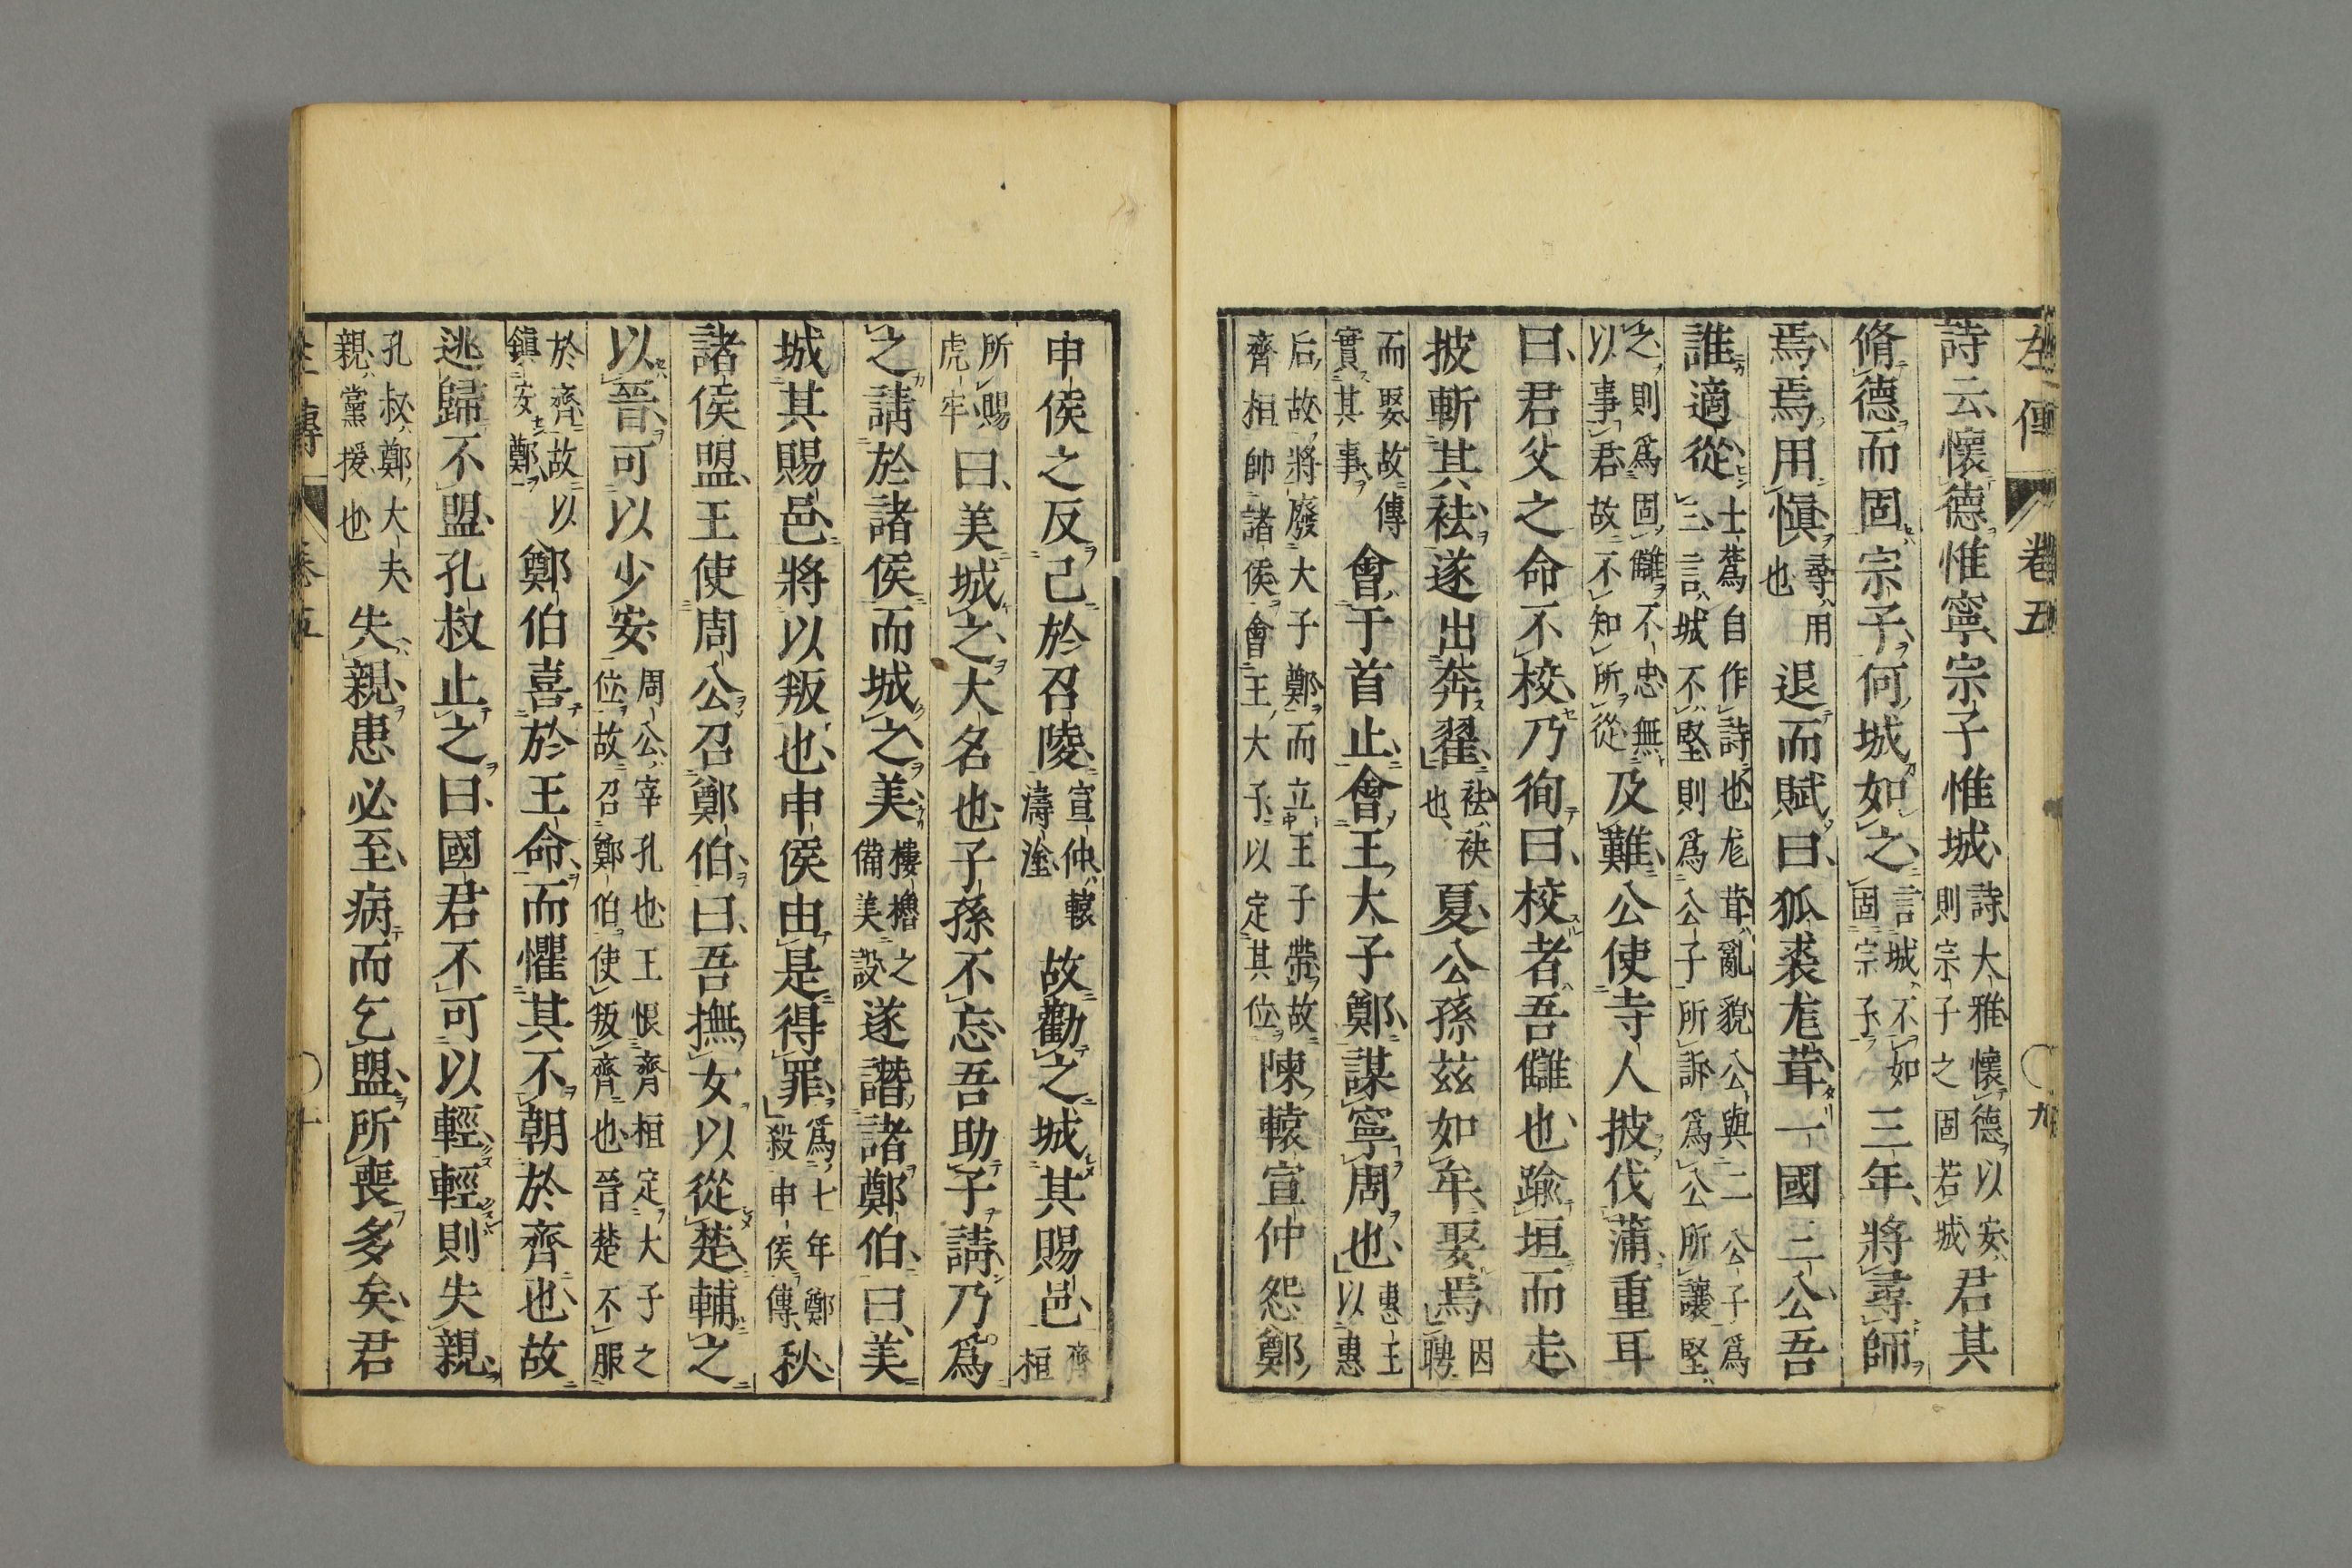 左傳 卷五 九
詩云懷德惟寧宗子惟城詩大雅懷德以安則宗子之固若城君其
脩德而固宗子何城如之言城不如固宗子三年將尋師
焉焉用愼尋用也退而賦曰狐裘尨茸一國三公吾
誰適從士蔿自作詩也尨茸亂貌公與二公子爲三言城不堅則爲公子所訴爲公所讓堅
之則爲固讎不忠無以事君故不知所從及難公使寺人披伐蒲重耳
曰君父之命不校乃徇曰校者吾讎也踰垣而走
披斬其袪遂出奔翟袪袂也夏公孫茲如牟娶焉因聘
而娶故傳實其事會于首止會王大子鄭謀寧周也惠王以惠
后故將廢大子鄭而立王子帶故齊桓帥諸侯會王大子以定其位陳轅宣仲怨鄭
申侯之反己於召陵宣仲轅濤塗故勸之城其賜邑齊桓
所賜虎牢曰美城之大名也子孫不忘吾助子請乃爲
之請於諸侯而城之美樓櫓之備美設遂譖諸鄭伯曰美
城其賜邑將以叛也申侯由是得罪爲七年鄭殺申侯傳秋
諸侯盟王使周公召鄭伯曰吾撫女以從楚輔之
以晉可以少安周公宰孔也王恨齊桓定大子之位故召鄭伯使叛齊也晉楚不服
於齊故以鎭安鄭鄭伯喜於王命而懼其不朝於齊也故
逃歸不盟孔叔止之曰國君不可以輕輕則失親
孔叔鄭大夫親黨援也失親患必至病而乞盟所喪多矣君